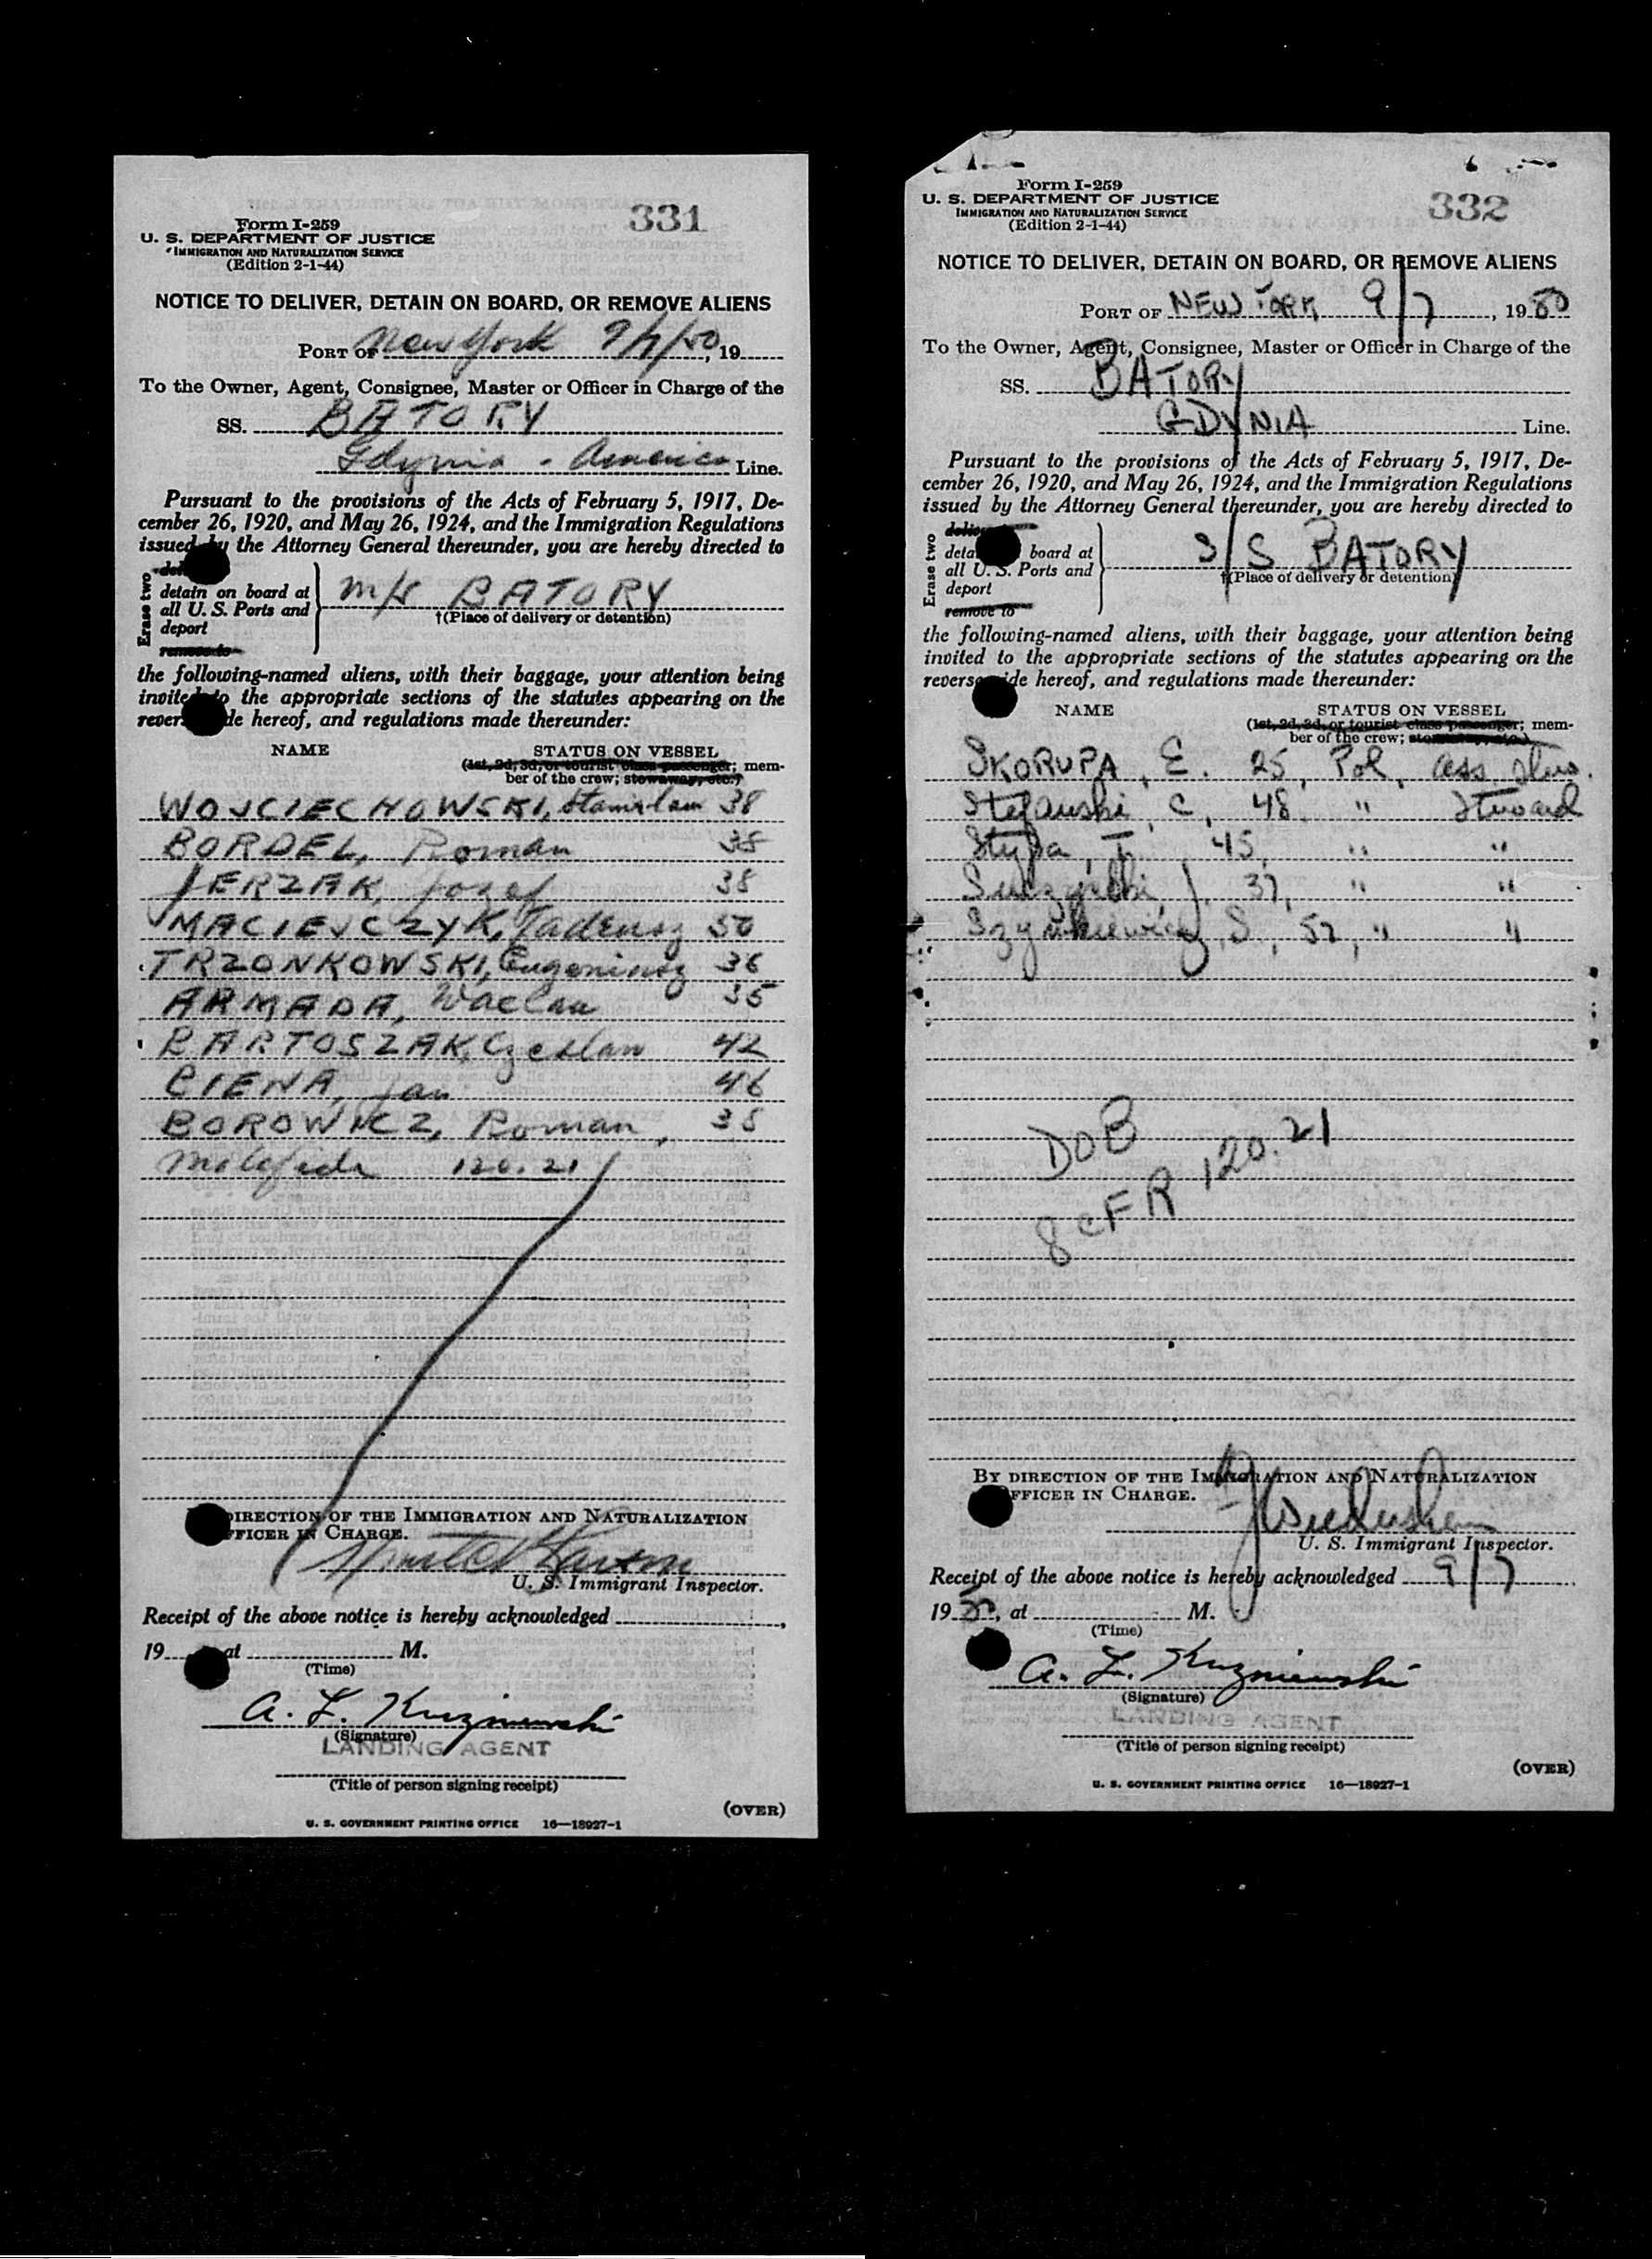 331
Form I-259
U. S. DEPARTMENT OF JUSTICE
IMMIGRATION AND NATURALIZATION SERVICE
(Edition 2-1-44)
NOTICE TO DELIVER, DETAIN ON BOARD, OR REMOVE ALIENS
PORT OF New York 9/7/50, 19
To the Owner, Agent, Consignee, Master or Officer in Charge of the
SS. BATORY
Gdynia - America Line.
Pursuant to the provisions of the Acts of February 5, 1917, De-
cember 26, 1920, and May 26, 1924, and the Immigration Regulations
issued by the Attorney General thereunder, you are hereby directed to
Erase two
detain on board at
all U. S. Ports and
deport
remove to
m/s BATORY
†(Place of delivery or detention)
the following-named aliens, with their baggage, your attention being
invited to the appropriate sections of the statutes appearing on the
hereof, and regulations made thereunder:
NAME STATUS ON VESSEL
(1st, 2d, 3d, or tourist class passenger; mem-
ber of the crew; stowaway, etc.)
WOJCIECHOWSKI, Stanislaw 38
BORDEL, Roman 38
JERZAK, Jozef 38
MACIEJCZYK, Tadeusz 50
TRZONKOWSKI, Eugeniusz 36
ARMADA, Waclaw 35
BARTOSZAK, Czeslaw 42
CIENA, Jan 46
BOROWICZ, Roman, 38
Malafide 120.21
DIRECTION OF THE IMMIGRATION AND NATURALIZATION
OFFICER IN CHARGE.
U. S. Immigrant Inspector.
Receipt of the above notice is hereby acknowledged
19 at M.
(Time)
A. L. Kuzniewski
(Signature)
LANDING AGENT
(Title of person signing receipt)
(OVER)
U. S. GOVERNMENT PRINTING OFFICE 16—18927-1
332
Form I-259
U. S. DEPARTMENT OF JUSTICE
IMMIGRATION AND NATURALIZATION SERVICE
(Edition 2-1-44)
NOTICE TO DELIVER, DETAIN ON BOARD, OR REMOVE ALIENS
PORT OF NEW YORK 9/7, 1950
To the Owner, Agent, Consignee, Master or Officer in Charge of the
SS. BATORY
GDYNIA Line.
Pursuant to the provisions of the Acts of February 5, 1917, De-
cember 26, 1920, and May 26, 1924, and the Immigration Regulations
issued by the Attorney General thereunder, you are hereby directed to
Erase two
board at
all U. S. Ports and
deport
remove to
S/S BATORY
†(Place of delivery or detention)
the following-named aliens, with their baggage, your attention being
invited to the appropriate sections of the statutes appearing on the
hereof, and regulations made thereunder:
NAME STATUS ON VESSEL
(1st, 2d, 3d, or tourist class passenger; mem-
ber of the crew; stowaway, etc.)
SKORUPA, E. 25, Pol, ass stew.
Stefanski, C, 48, " Steward
Stypa, T. 45, " "
J. 37, " "
Szynkiewicz, S, 52, " "
DOB
8 CFR 120.21
BY DIRECTION OF THE IMMIGRATION AND NATURALIZATION
OFFICER IN CHARGE.
U. S. Immigrant Inspector.
Receipt of the above notice is hereby acknowledged 9/7
1950, at M.
(Time)
A. L. Kuzniewski
(Signature)
LANDING AGENT
(Title of person signing receipt)
(OVER)
U. S. GOVERNMENT PRINTING OFFICE 16—18927-1